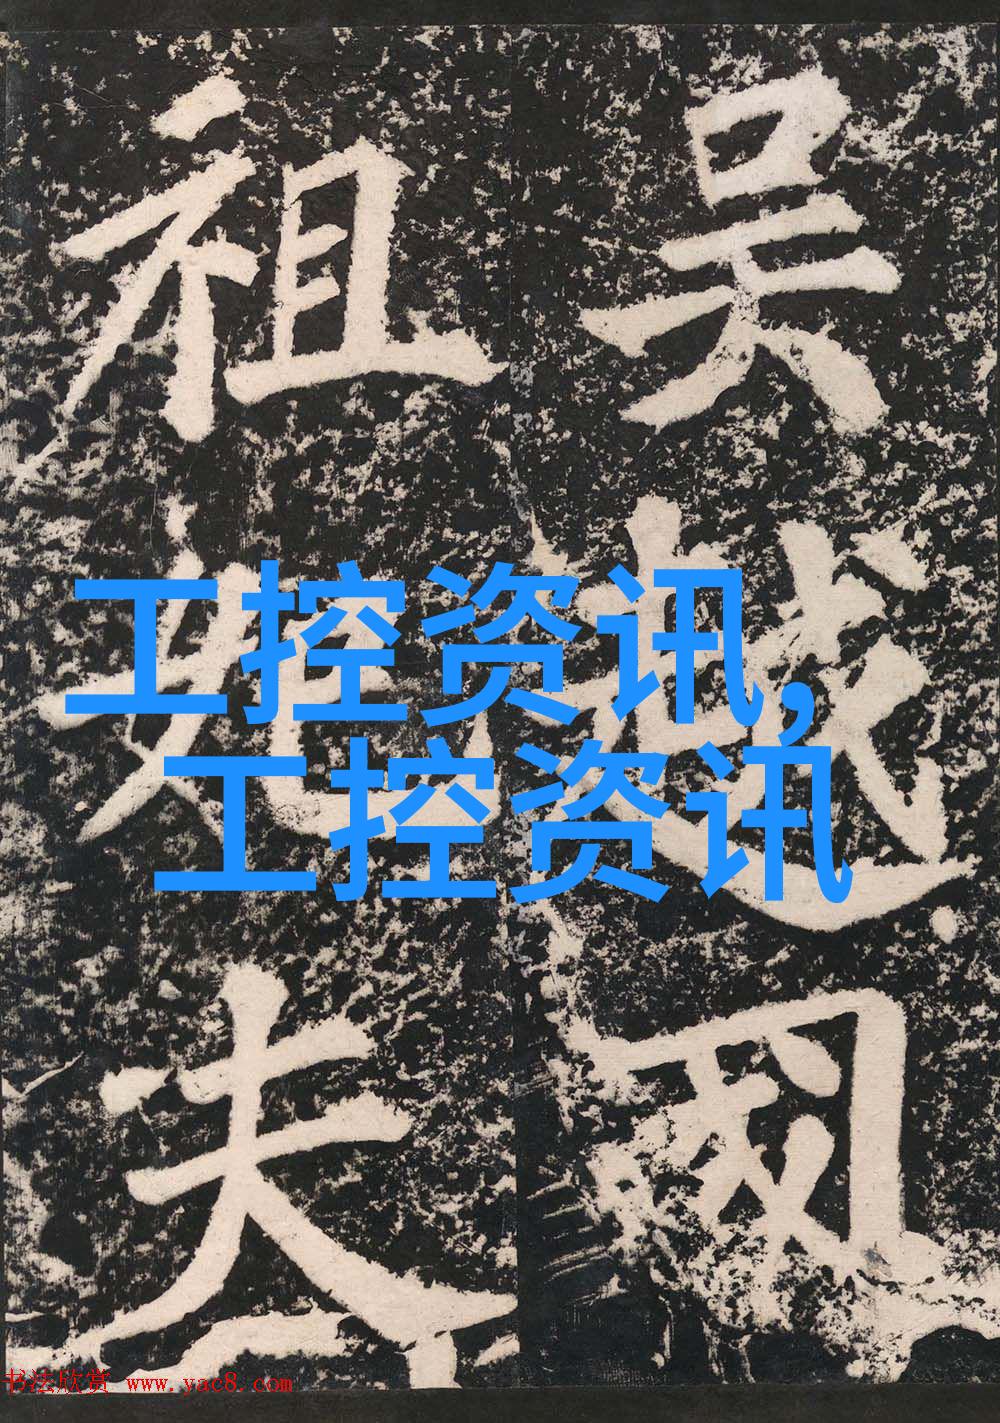 吴越国
祖妣夫
工控资讯,
工控资讯
书法欣赏 www.yac8.com